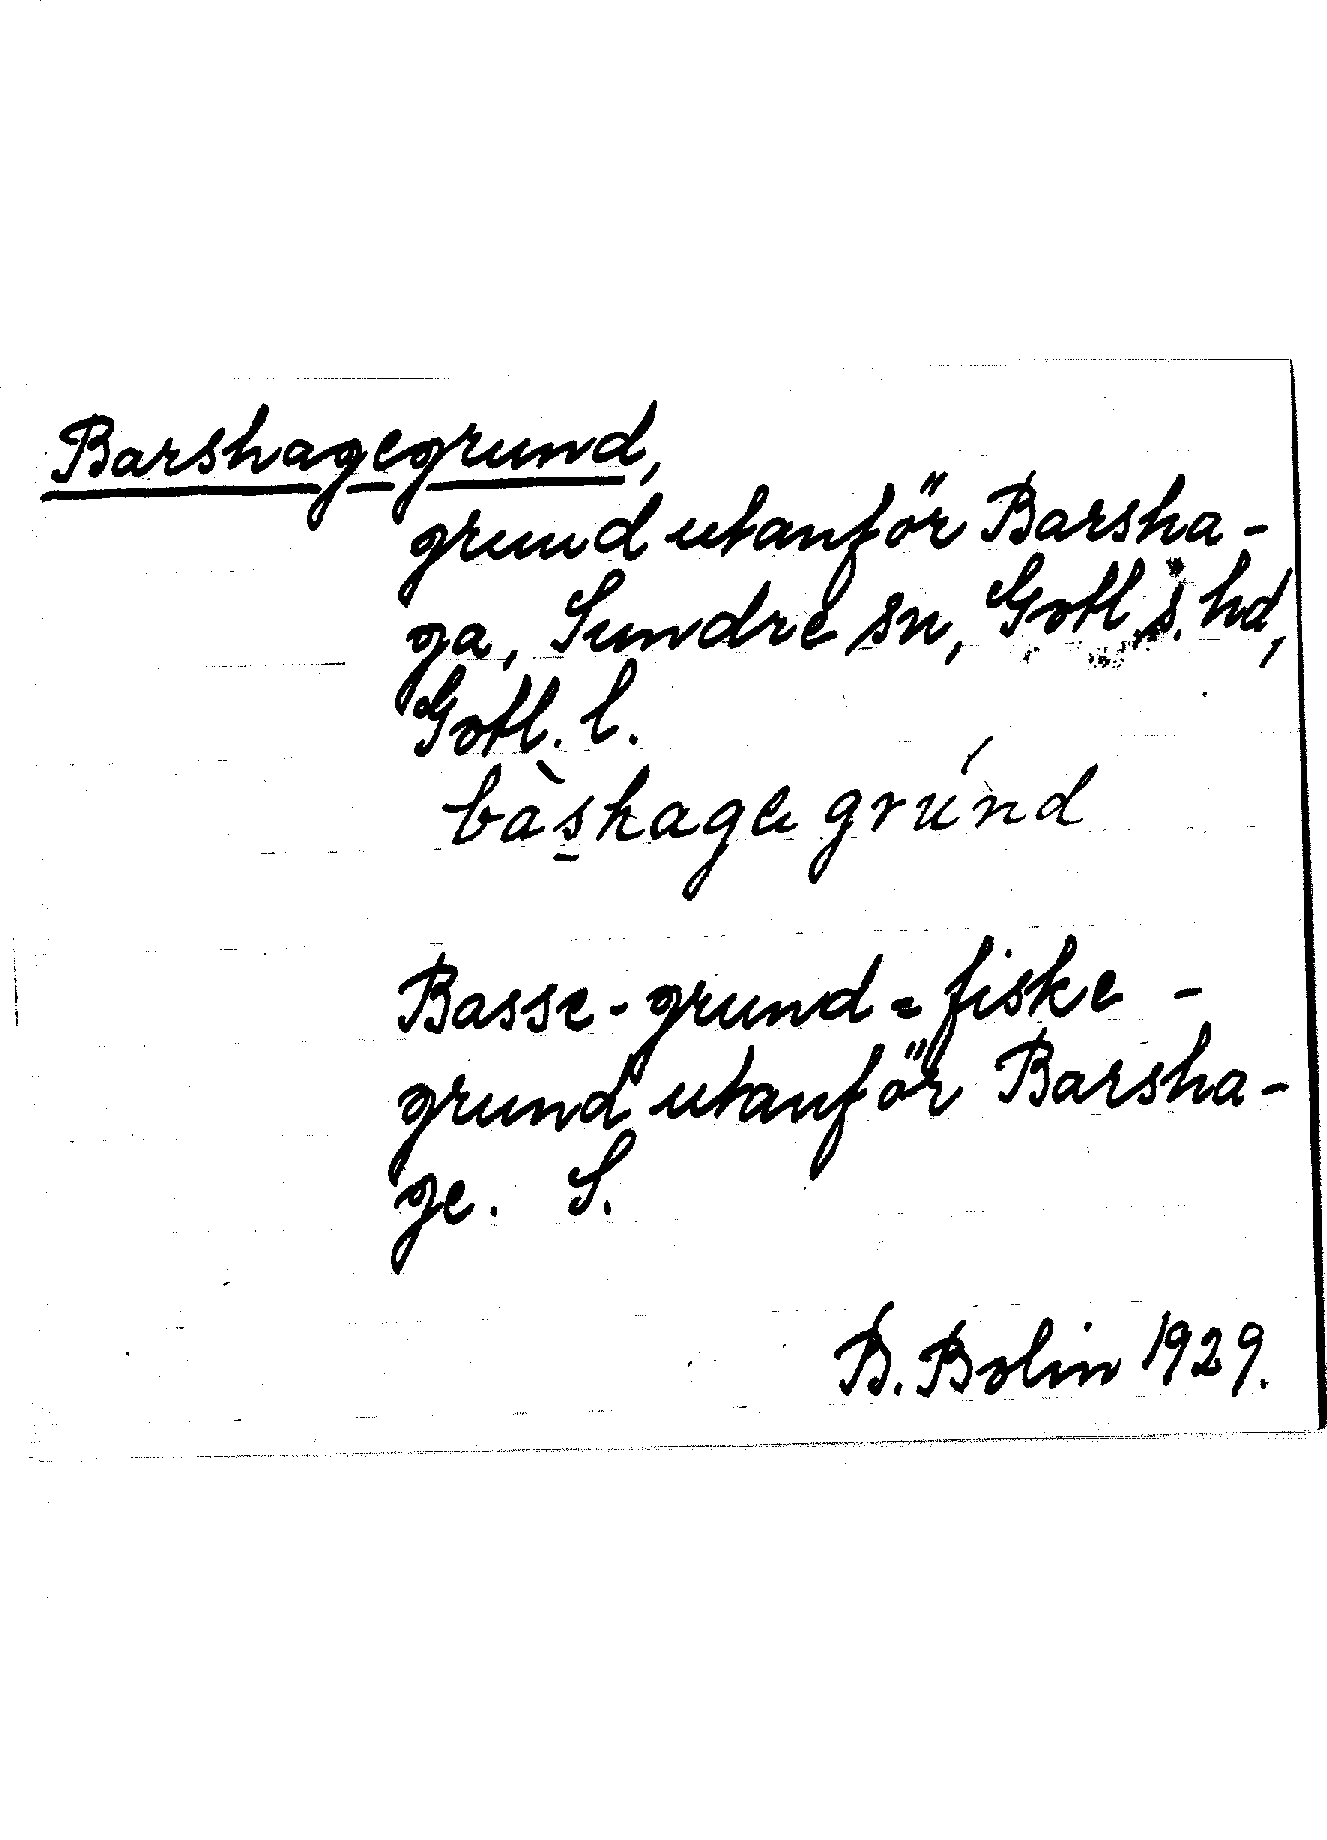 Barshagegrund,
grund utanför Barsha-
ga, Sundre sn, Gotl. s. hd,
Gotl. l.
bàs̱hage grúnd
Basse-grund = fiske-
grund utanför Barsha-
ge. S.
B. Bolin 1929.